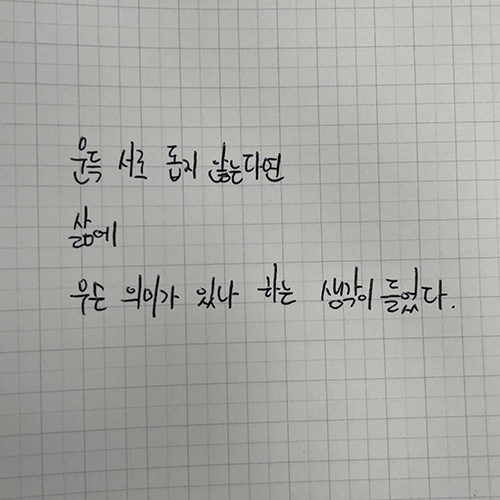 문득 서로 돕지 않는다면
삶에
무슨 의미가 있나 하는 생각이 들었다.